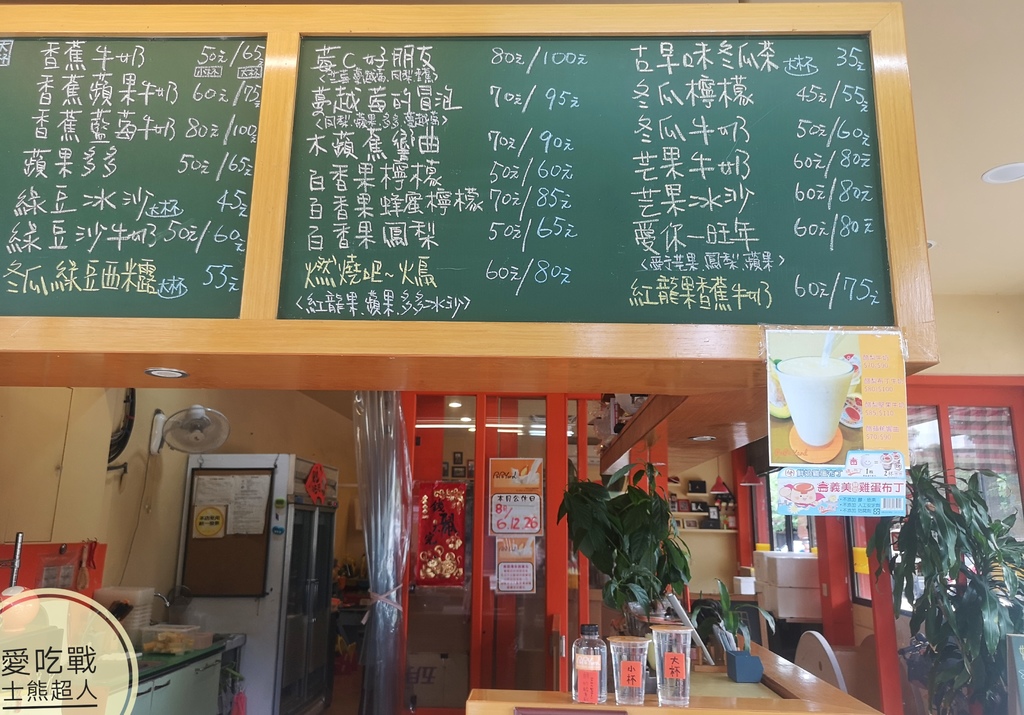 香蕉牛奶 50元/65元
小杯 大杯
香蕉蘋果牛奶 60元/75元
香蕉藍莓牛奶 80元/100元
蘋果多多 50元/65元
綠豆冰沙 大杯 45元
綠豆沙牛奶 50元/60元
冬瓜綠豆西米露 大杯 55元
莓C好朋友 80元/100元
蔓越莓的冒泡 70元/95元
(鳳梨.蘋果.多多.蔓越莓)
木蘋蕉響曲 70元/90元
百香果檸檬 50元/60元
百香果蜂蜜檸檬 70元/85元
百香果鳳梨 50元/65元
燃燒吧~火鳥 60元/80元
<紅龍果.蘋果.多多冰沙>
古早味冬瓜茶 大杯 35元
冬瓜檸檬 45元/55元
冬瓜牛奶 50元/60元
芒果牛奶 60元/80元
芒果冰沙 60元/80元
愛你一旺年 60元/80元
<愛玉.芒果.鳳梨.蘋果>
紅龍果香蕉牛奶 60元/75元
義美 雞蛋布丁
本月公休日
8月
6.12.26
小杯
大杯
愛吃戰
士熊超人